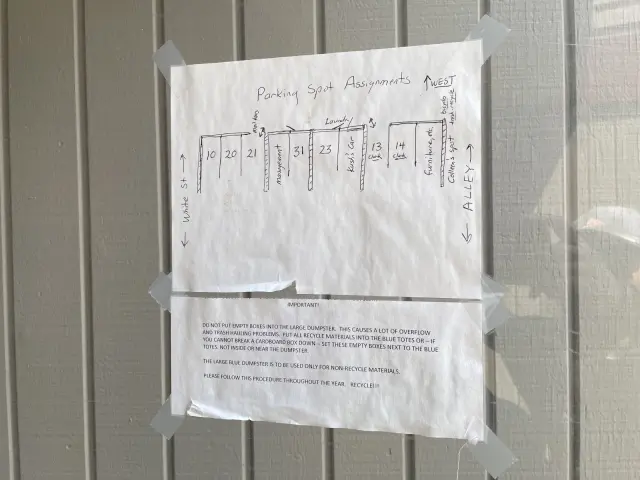 Parking Spot Assignments
↑ WEST
Laundry
10 20 21 Management 31 23 Kush's Car 13 14 Furniture, etc. Colleen's spot
← White St. →
← ALLEY →
IMPORTANT!
DO NOT PUT EMPTY BOXES INTO THE LARGE DUMPSTER. THIS CAUSES A LOT OF OVERFLOW
AND TRASH HAULING PROBLEMS. PUT ALL RECYCLE MATERIALS INTO THE BLUE TOTES OR – IF
YOU CANNOT BREAK A CARDBOARD BOX DOWN – SET THESE EMPTY BOXES NEXT TO THE BLUE
TOTES. NOT INSIDE OR NEAR THE DUMPSTER.
THE LARGE BLUE DUMPSTER IS TO BE USED ONLY FOR NON-RECYCLE MATERIALS.
PLEASE FOLLOW THIS PROCEDURE THROUGHOUT THE YEAR. RECYCLE!!!